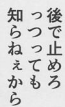 後で止めろ
っつっても
知らねぇから